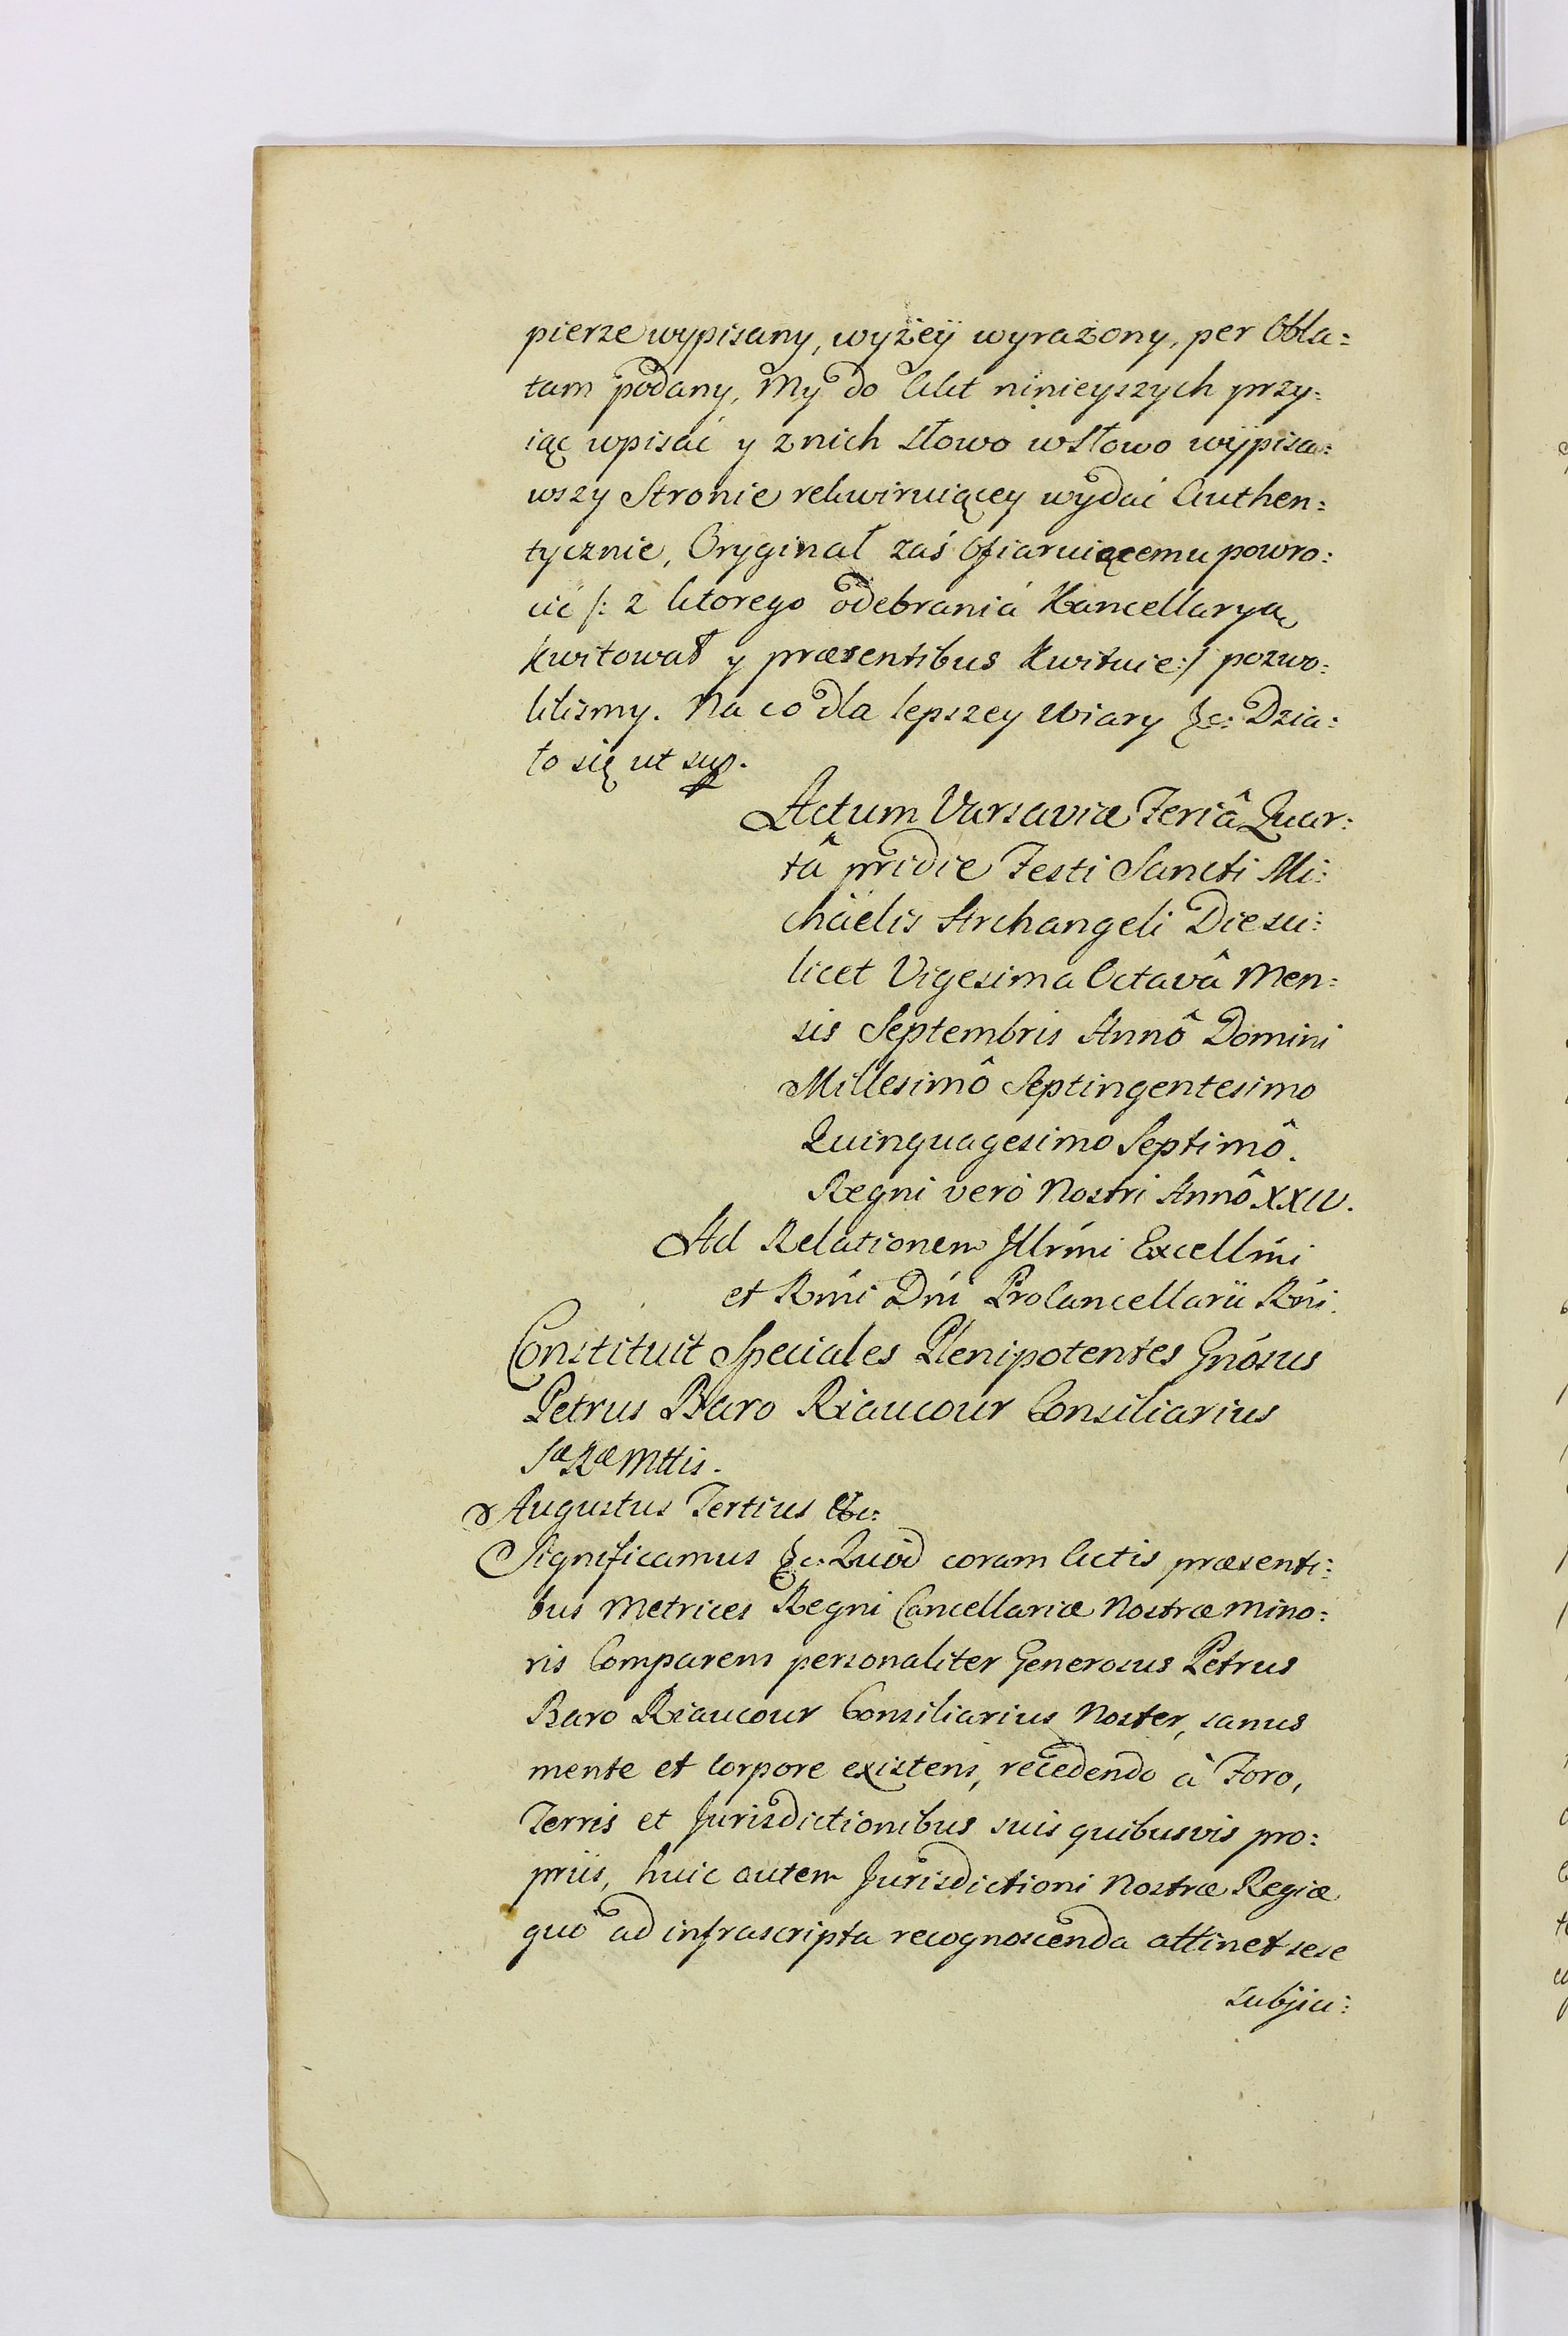 pierze wypisany, wyżey wyrażony, per Obla=
tam podany, My do Akt ninieyszych przy=
iąć wpisać y z nich słowo w słowo wypisa=
wszy Stronie rekwiruiącey wydać Authen=
tycznie, Oryginał zaś Ofiaruiącemu powro=
cić /: z ktorego odebrania Kancellaryą
kwitował y præsentibus kwituie :/ pozwo=
liliśmy. Na co dla lepszey Wiary &c: Dzia=
ło się ut sup.
Actum Varsaviæ Feriâ Quar=
tâ pridie Festi Sancti Mi=
chaelis Archangeli Die sci=
licet Vigesima Octavâ Men=
sis Septembris Annô Domini
Millesimô Septingentesimo
Quinquagesimo Septimô.
Regni verò Nostri Annô XXIV.
Ad Relationem Illrmi Excellmi
et Rmi Dni ProCancellarii Rni.
Constituit Speciales Plenipotentes Gnosus
Petrus Baro Riaucour Consiliarius
Sæ Ræ Mttis.
Augustus Tertius &c:
Significamus &c. Quod coram Actis præsenti=
bus Metrices Regni Cancellariæ Nostræ Mino=
ris Comparens personaliter Generosus Petrus
Baro Riaucour Consiliarius Noster, sanus
mente et Corpore existens, recedendo à Foro,
Terris et Jurisdictionibus suis quibusvis pro=
priis, huic autem Jurisdictioni Nostræ Regiæ
quo ad infrascripta recognoscenda attinet sese
subjici=